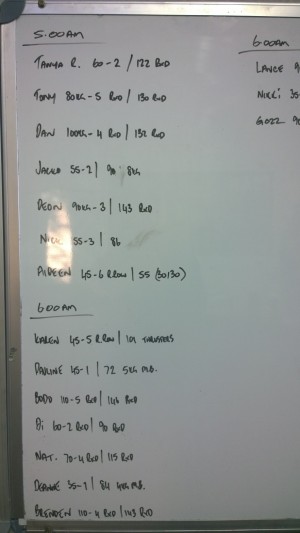 5:00AM
TANYA R. 60-2 / 122 RXD
TONY 80KG-5 RXD / 130 RXD
DAN 100KG-4 RXD / 132 RXD
JACKO 55-2 | 90 8KG
DEON 90KG-3 | 143 RXD
55-3 | 86
AIDEEN 45-6 R.ROW | 55 (30/30)
6:00AM
KAREN 45-5 R.ROW | 101 THRUSTERS
PAULINE 45-1 | 72 5KG M.B.
BODO 110-5 RXD | 146 RXD
Di 60-2 RXD | 90 RXD
NAT. 70-4 RXD | 115 RXD
35-1 | 84 4KG M.B.
BRENDEN 110-4 RXD | 143 RXD
6:00AM
LANCE 9
NIKKI 35-
GOZZ 90